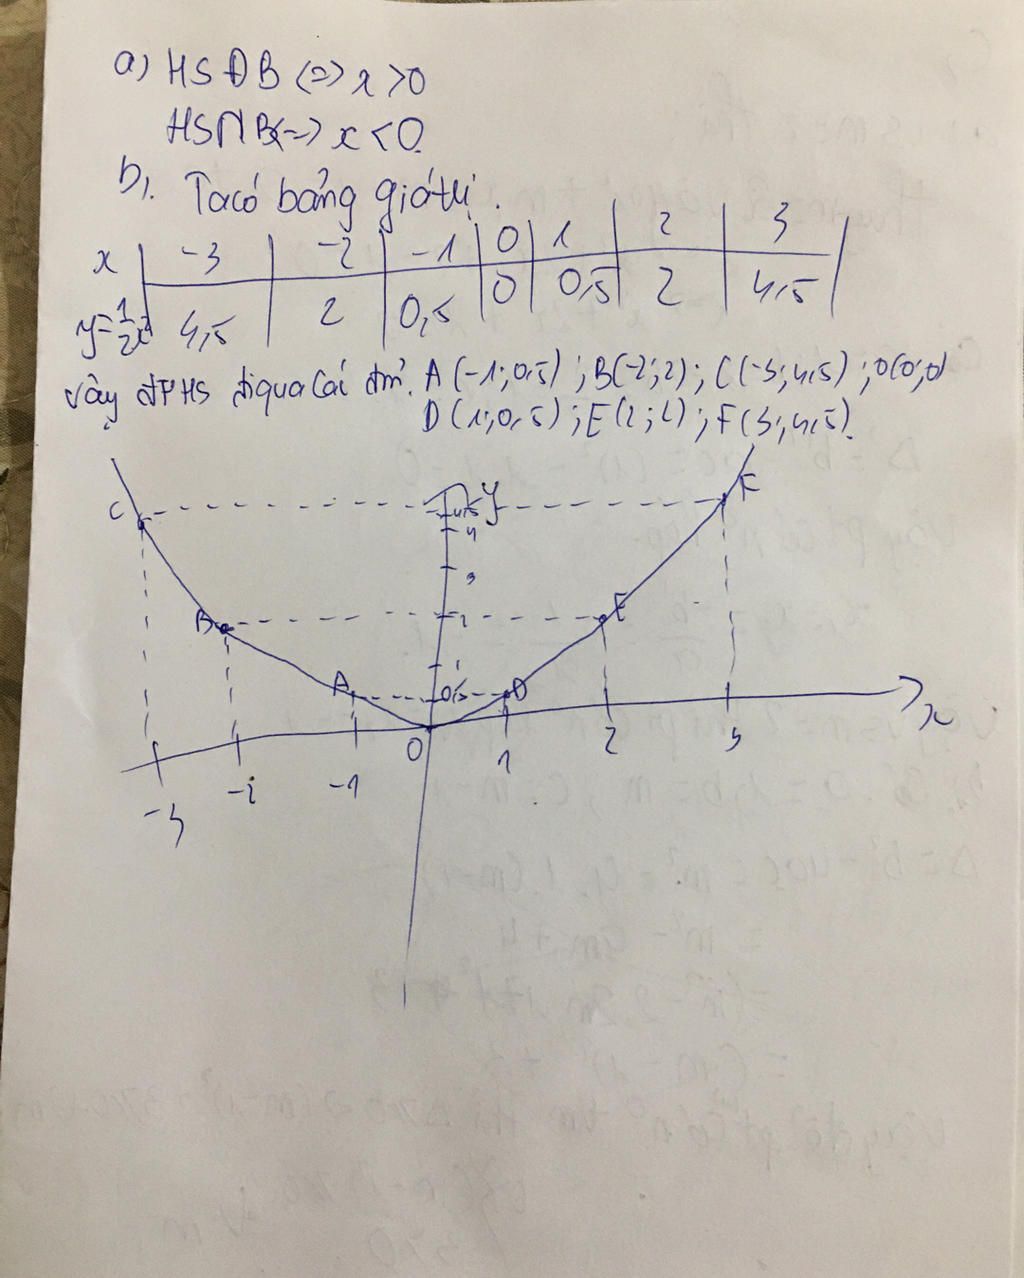 a) HSĐB <=> x > 0
HSNB <=> x < 0
b). Ta có bảng giá trị.
x | -3 | -2 | -1 | 0 | 1 | 2 | 3
y=1/2x² | 4,5 | 2 | 0,5 | 0 | 0,5 | 2 | 4,5
vậy đTHS đi qua các đm': A(-1;0,5) ; B(-2;2) ; C(-3;4,5) ; O(0;0)
D(1;0,5) ; E(2;2) ; F(3;4,5).
y
C 4,5 F
4
3
B 2 E
1
A 0,5 D
x
-3 -2 -1 O 1 2 3